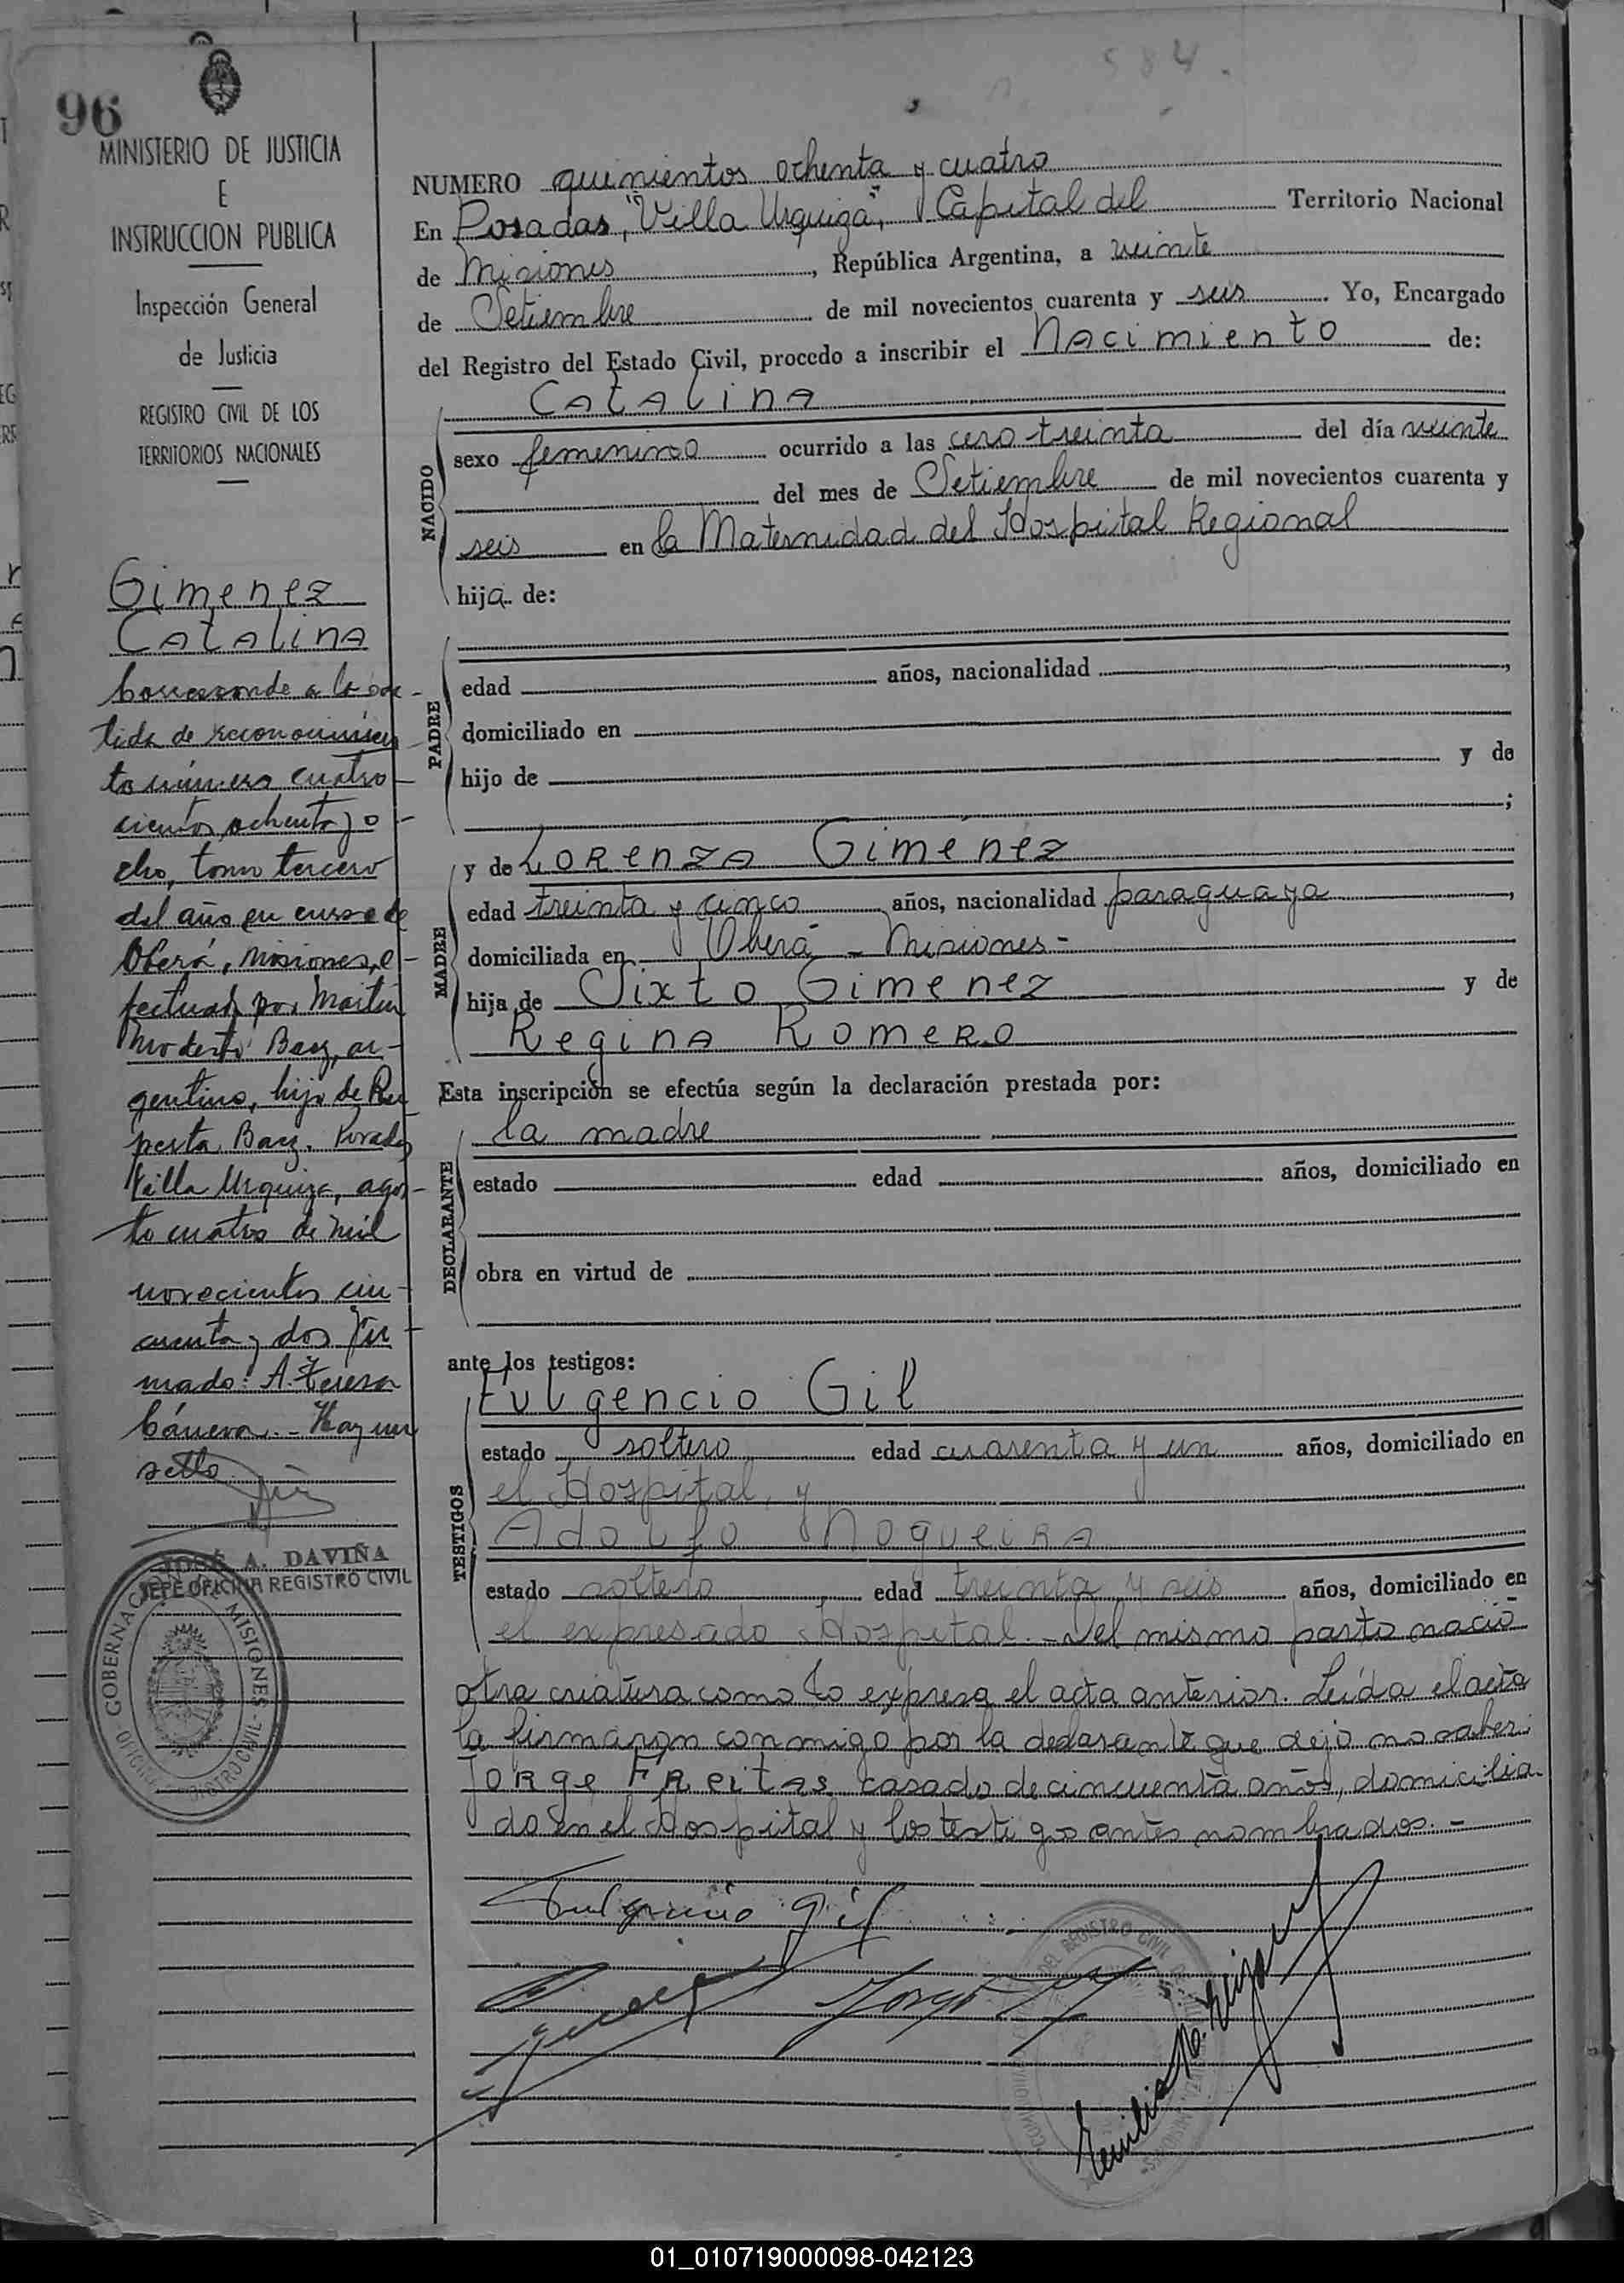 584.
96
MINISTERIO DE JUSTICIA
E
INSTRUCCION PUBLICA
Inspección General
de Justicia
REGISTRO CIVIL DE LOS
TERRITORIOS NACIONALES
Gimenez
Catalina
Corresponde a la par-
tida de reconocimien
to número cuatro
cientos ochenta y o-
cho, tomo tercero
del año en curso de
Oberá, Misiones, e-
fectuado por Martín
Modesto Baez, ar-
gentino, hijo de Ru
perta Baez. Posadas
Villa Urquiza, agos-
to cuatro de mil
novecientos cin-
cuenta y dos Fir-
mado: A. Teresa
Cáneva.- Hay un
sello
JOSÉ A. DAVIÑA
JEFE OFICINA REGISTRO CIVIL
GOBERNACION DE MISIONES
NUMERO quinientos ochenta y cuatro
En Posadas, "Villa Urquiza", Capital del Territorio Nacional
de Misiones, República Argentina, a veinte
de Setiembre de mil novecientos cuarenta y seis. Yo, Encargado
del Registro del Estado Civil, procedo a inscribir el Nacimiento de:
NACIDO
Catalina
sexo femenino ocurrido a las cero treinta del día veinte
del mes de Setiembre de mil novecientos cuarenta y
seis en la Maternidad del Hospital Regional
hija de:
PADRE
edad años, nacionalidad ,
domiciliado en
hijo de y de
;
MADRE
y de Lorenza Giménez
edad treinta y cinco años, nacionalidad paraguaya,
domiciliada en Oberá - Misiones-
hija de Sixto Gimenez y de
Regina Romero
Esta inscripción se efectúa según la declaración prestada por:
DECLARANTE
la madre
estado edad años, domiciliado en
obra en virtud de
ante los testigos:
TESTIGOS
Fulgencio Gil
estado soltero edad cuarenta y un años, domiciliado en
el Hospital, y
Adolfo Nogueira
estado soltero edad treinta y seis años, domiciliado en
el expresado Hospital.- Del mismo parto nació
otra criatura como lo expresa el acta anterior. Leída el acta
la firmaron conmigo por la declarante que dejo no saber:
Jorge Freitas, casado de cincuenta años, domicilia-
do en el Hospital y los testigos antes nombrados.-
Fulgencio Gil
Jorge
DEL REGISTRO CIVIL
01_010719000098-042123